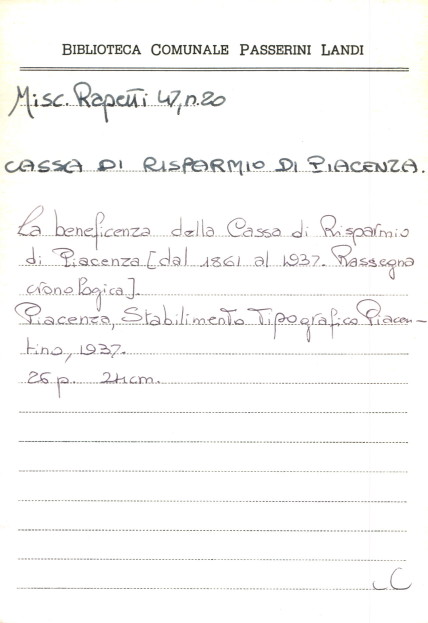 BIBLIOTECA COMUNALE PASSERINI LANDI
Misc. Rapetti 47, n. 20
CASSA DI RISPARMIO DI PIACENZA.
La beneficenza della Cassa di Risparmio
di Piacenza [dal 1861 al 1937. Rassegna
cronologica].
Piacenza, Stabilimento Tipografico Piacen-
tino, 1937.
26 p. 24cm.